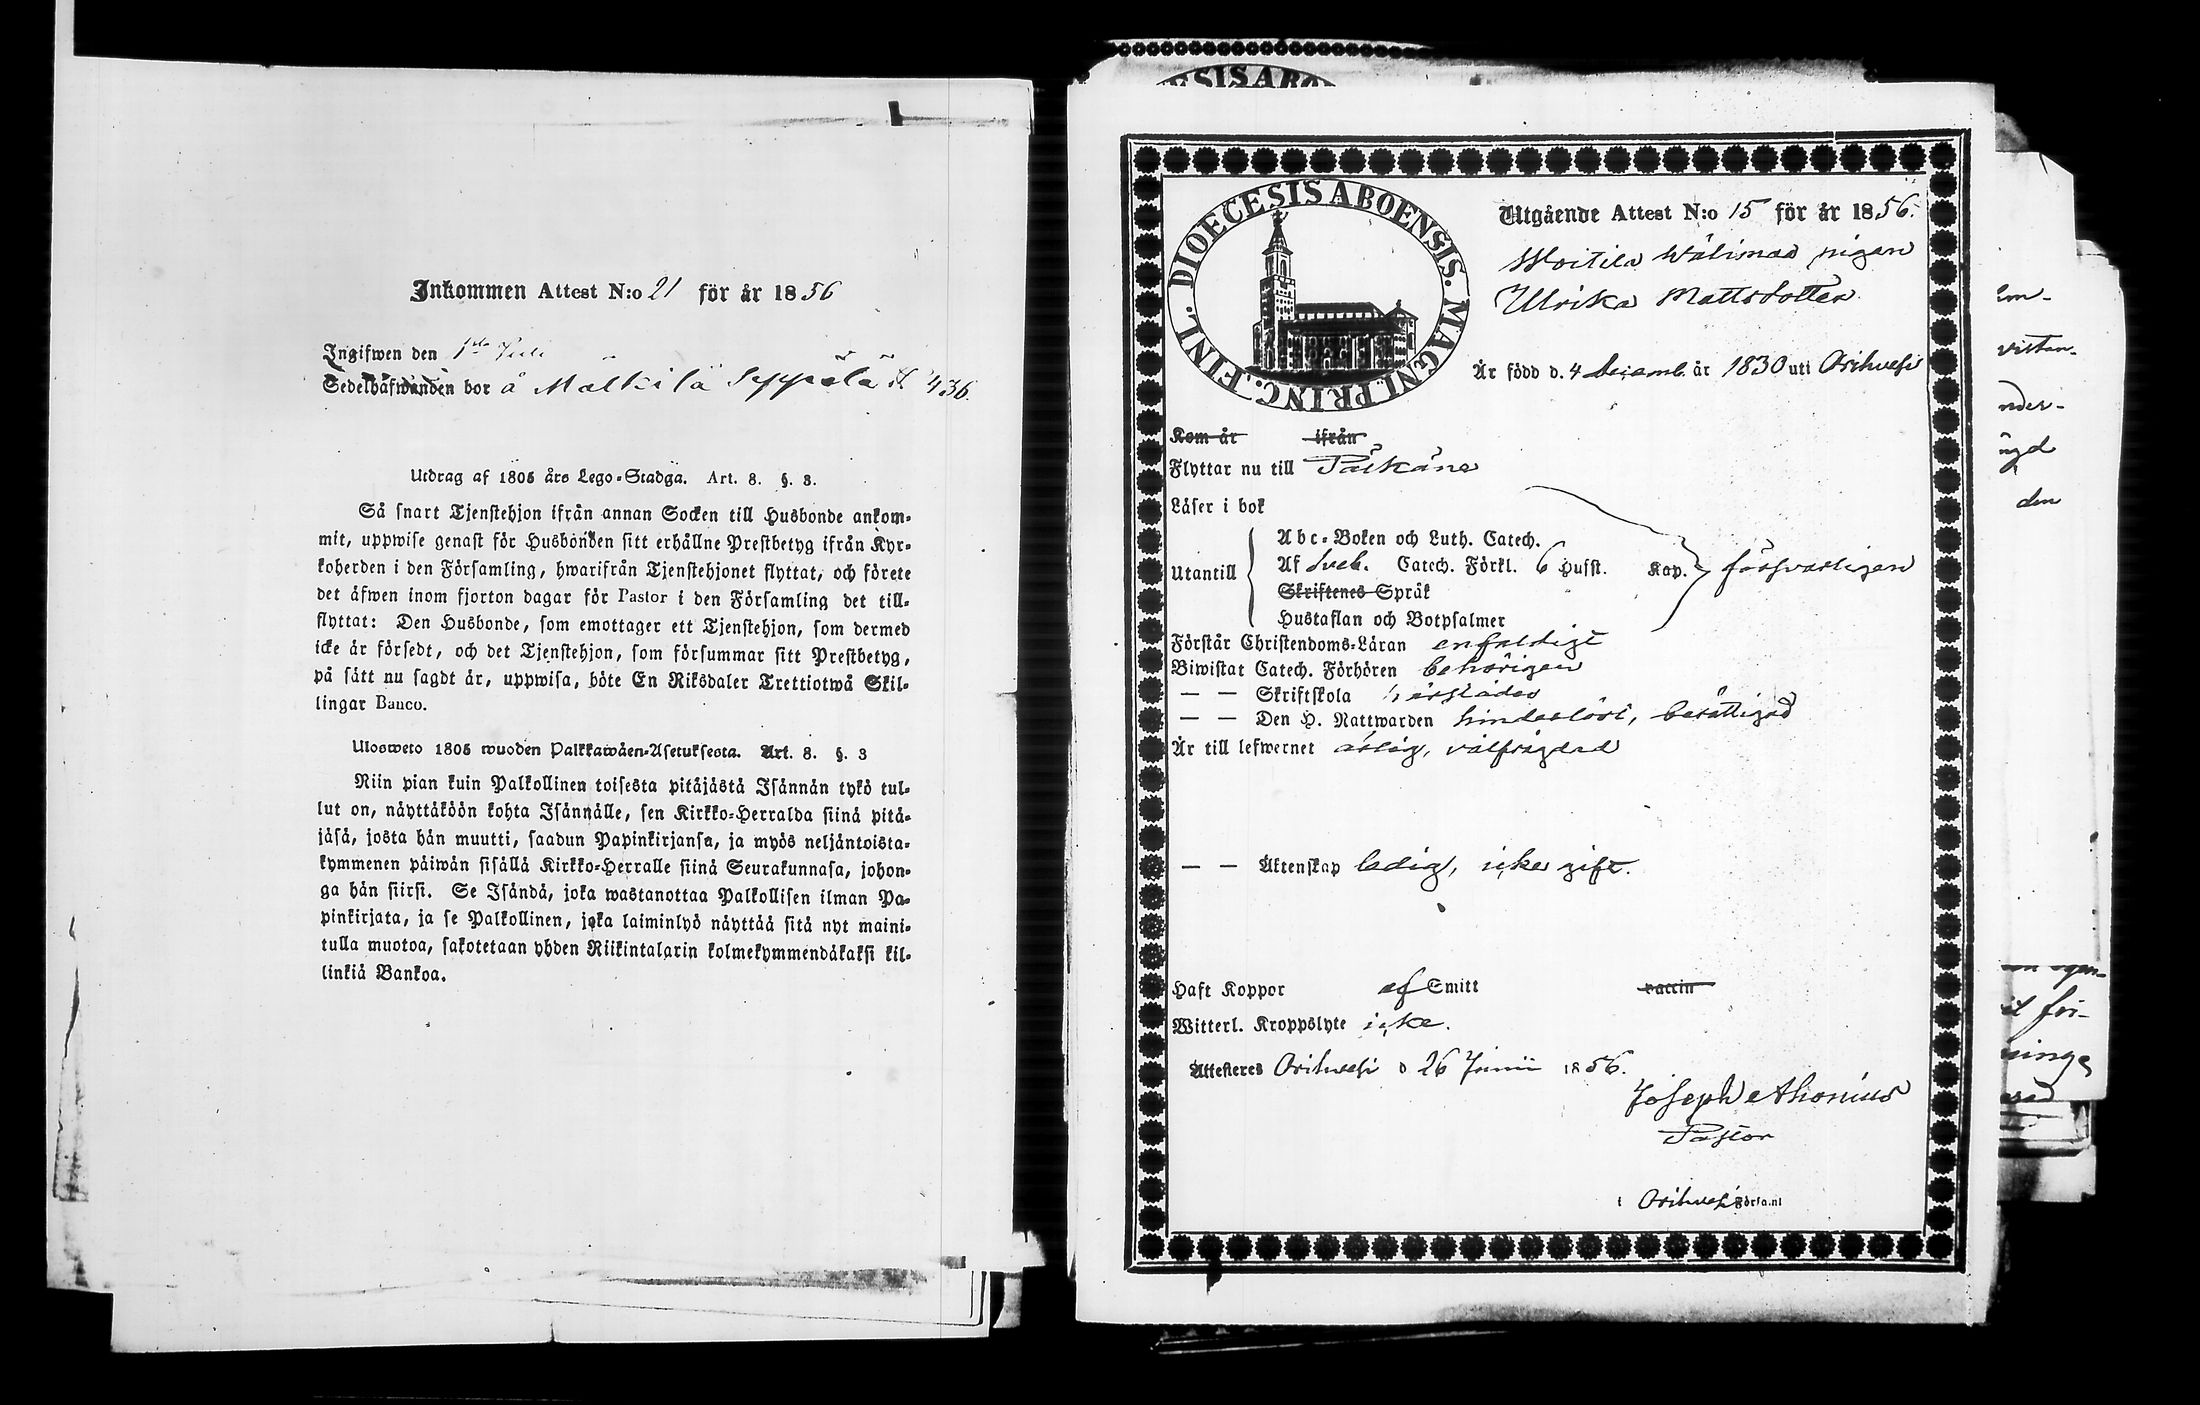 Inkommen Attest N:o 21 för år 1856
Ingifwen den 1sta Juli
Sedelhafwanden bor å Mälkilä Seppälä N 436.
Utdrag af 1805 års Lego-Stadga. Art. 8. §. 3.
Så snart Tjenstehjon ifrån annan Socken till Husbonde ankom-
mit, uppwise genast för Husbonden sitt erhållne Prestbetyg ifrån Kyr-
koherden i den Församling, hwarifrån Tjenstehjonet flyttat, och förete
det äfwen inom fjorton dagar för Pastor i den Församling det till-
flyttat: Den Husbonde, som emottager ett Tjenstehjon, som dermed
icke är försedt, och det Tjenstehjon, som försummar sitt Prestbetyg,
på sätt nu sagdt är, uppwisa, böte En Riksdaler Trettiotwå Skil-
lingar Banco.
Ulosweto 1805 wuoden Palkkawäen-Asetuksesta. Art. 8. §. 3
Niin pian kuin Palkollinen toisesta pitäjästä Isännän tykö tul-
lut on, näyttäköön kohta Isännälle, sen Kirkko-Herralda siinä pitä-
jäsä, josta hän muutti, saadun Papinkirjansa, ja myös neljäntoista-
kymmenen päiwän sisällä Kirkko-Herralle siinä Seurakunnasa, johon-
ga hän siirsi. Se Isändä, joka wastanottaa Palkollisen ilman Pa-
pinkirjata, ja se Palkollinen, joka laiminlyö näyttää sitä nyt maini-
tulla muotoa, sakotetaan yhden Riikintalarin kolmekymmendäkaksi kil-
linkiä Bankoa.
ESIS ABO
DIOECESIS ABOENSIS. MAGNI PRINC. FINL.
Utgående Attest N:o 15 för år 1856.
Woitila Wälimaa pigan
Ulrika Mattsdotter
Är född d. 4 Decemb. år 1830 uti Orihvesi
Kom år ifrån
Flyttar nu till Pälkäne
Läser i bok
Utantill
Abc-Boken och Luth. Catech.
Af Sveb. Catech. Förkl. 6 Hufst. Kap. försvarligen
Skriftenes Språk
Hustaflan och Botpsalmer
Förstår Christendoms-Läran enfaldigt
Biwistat Catech. Förhören behörigen
— — Skriftskola härstädes
— — Den H. Nattwarden hinderlöst, berättigad
Är till lefwernet ärlig, välfrägdad
— — Äktenskap ledig, icke gift.
Haft Koppor af Smitt vaccin
Witterl. Kroppslyte icke.
Attesteres Orihvesi d 26 Junii 1856.
Joseph Ahonius
Pastor
i Orihvesi Förs:a.nl
vistan-
nder-
den